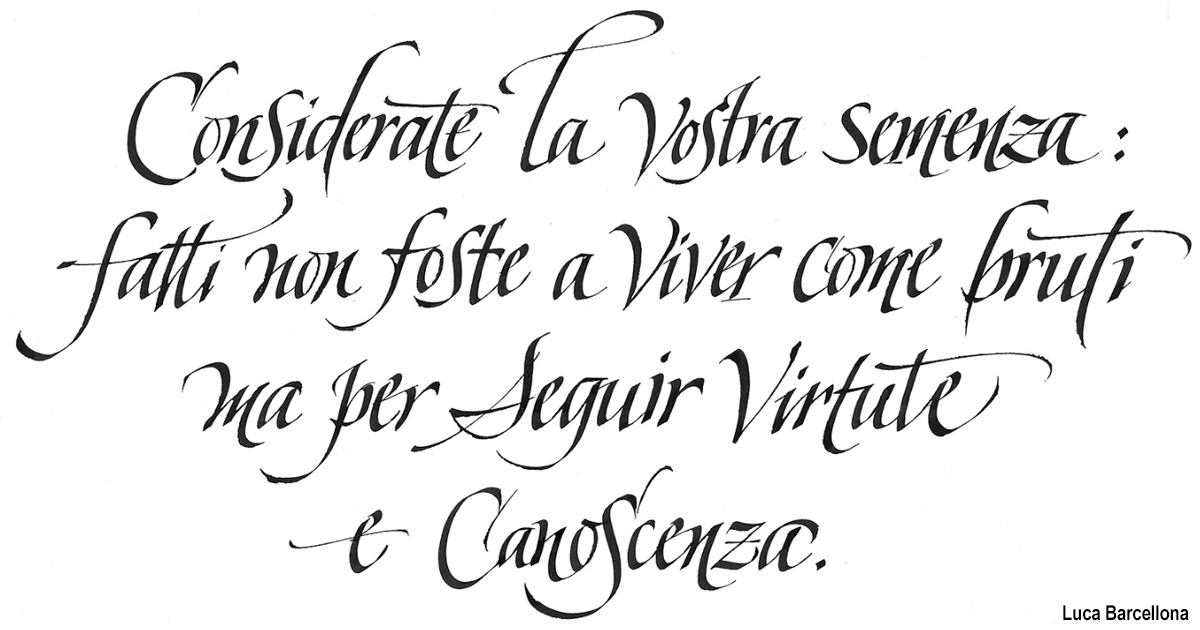 Considerate la Vostra semenza:
fatti non foste a Viver come bruti
ma per Seguir Virtute
e Canoscenza.
Luca Barcellona